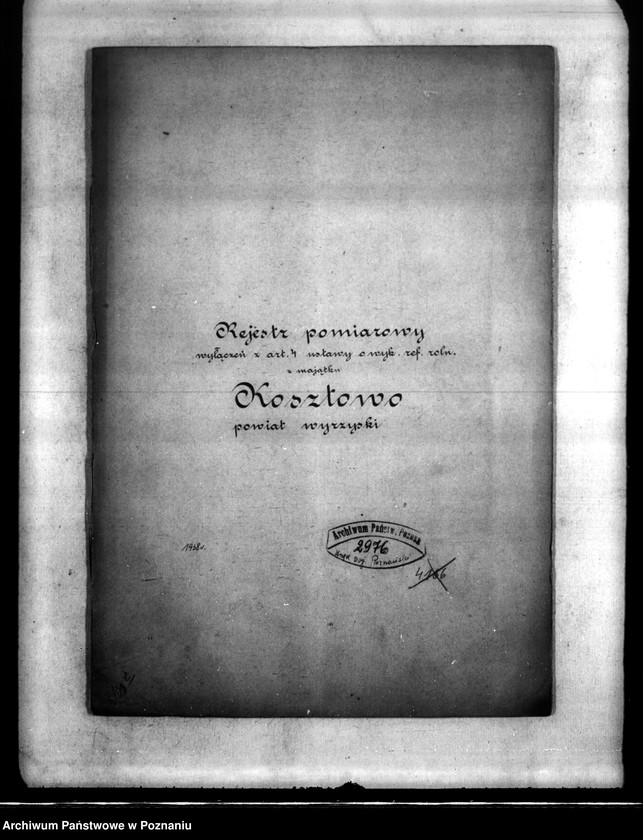 Rejestr pomiarowy
wyłączeń z art. 4 ustawy o wyk. ref. roln.
z majątku
Kosztowo
powiat wyrzyski
1938r.
Archiwum Państw. Poznań
2976
Urząd Woj. Poznański
4166
Archiwum Państwowe w Poznaniu